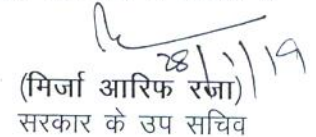 28/1/19
(मिर्जा आरिफ रजा)
सरकार के उप सचिव